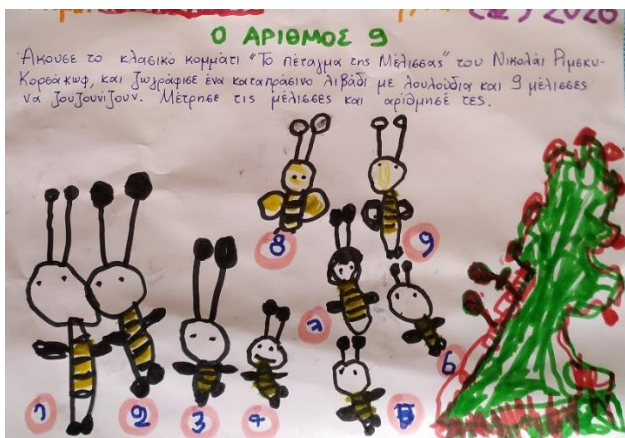 2020
Ο ΑΡΙΘΜΟΣ 9
Άκουσε το κλασικό κομμάτι "Το πέταγμα της Μέλισσας" του Νικολάι Ρίμσκυ-
Κορσάκωφ, και ζωγράφισε ένα καταπράσινο λιβάδι με λουλούδια και 9 μέλισσες
να ζουζουνίζουν. Μέτρησε τις μέλισσες και αρίθμησέ τες.
8
9
7
6
1
2
3
4
5